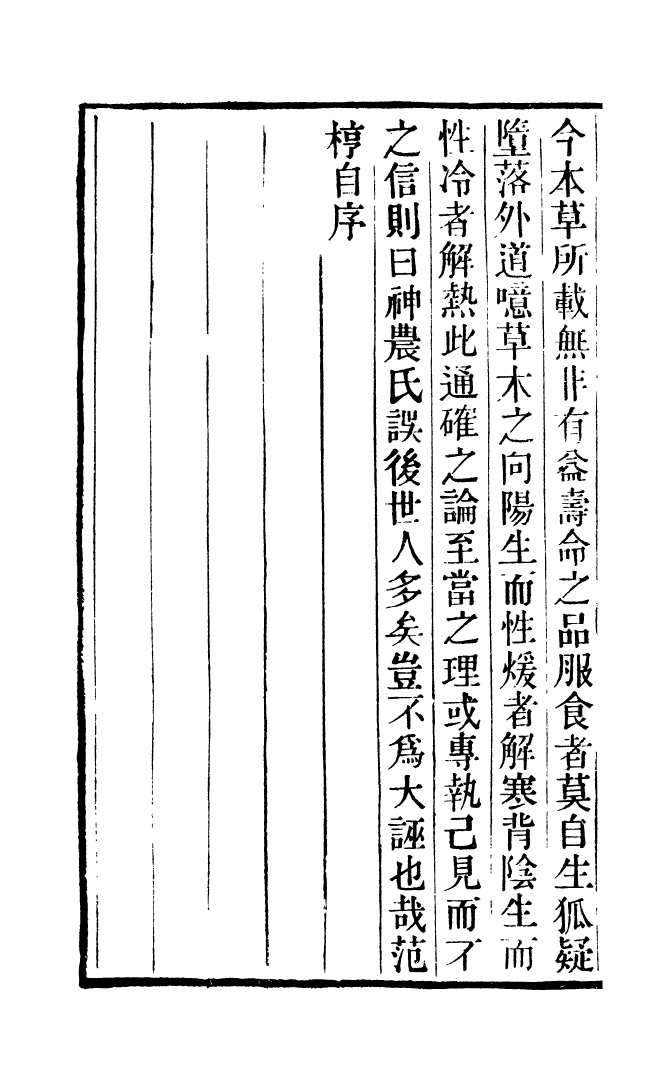 今本草所載無非有益壽命之品服食者莫自生狐疑
墮落外道噫草木之向陽生而性煖者解寒背陰生而
性冷者解熱此通確之論至當之理或專執己見而不
之信則曰神農氏誤後世人多矣豈不爲大誣也哉范
梈自序